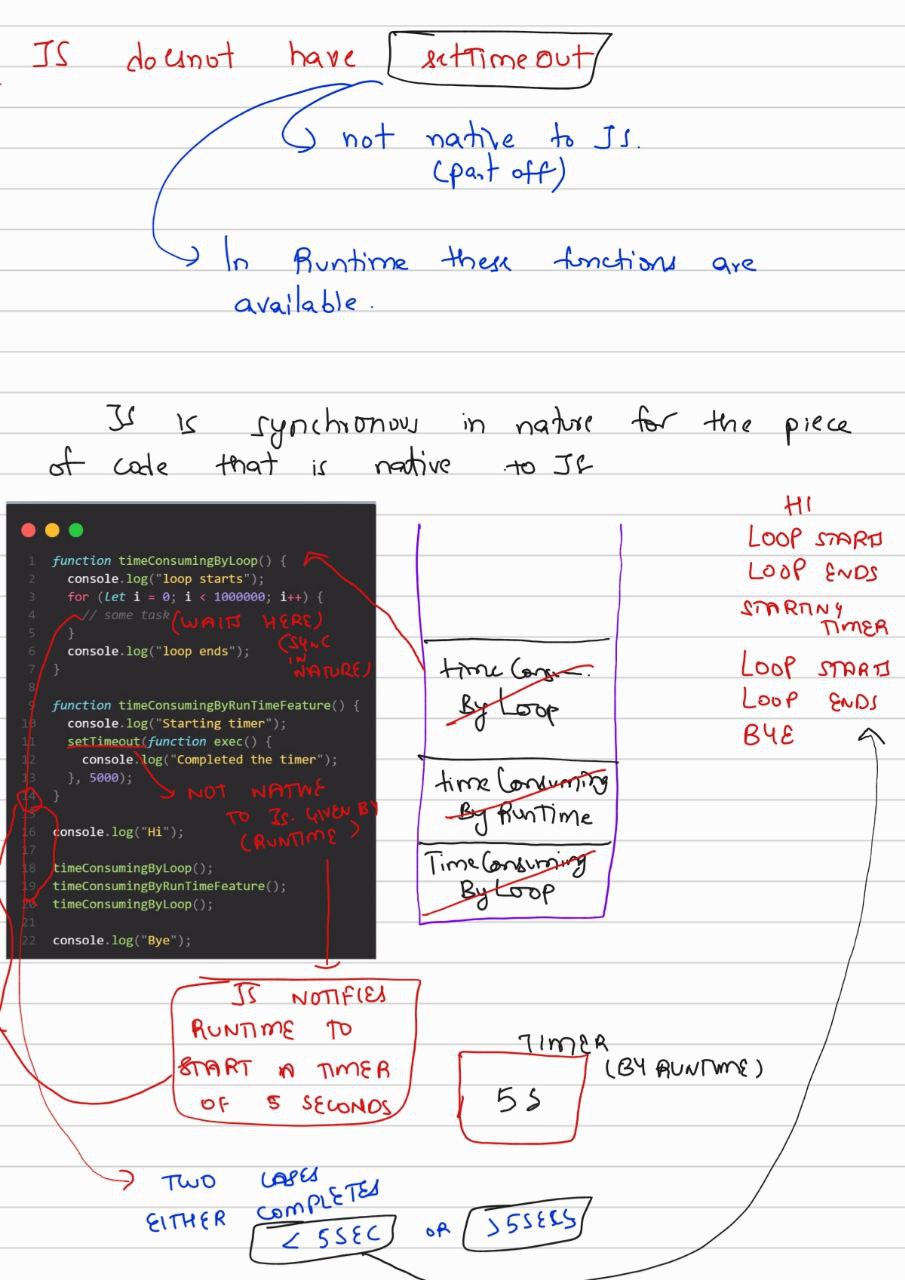 JS doesnot have setTimeout
not native to JS.
(part off)
In Runtime these functions are
available.
JS is synchronous in nature for the piece
of code that is native to JS
1 function timeConsumingByLoop() {
2 console.log("loop starts");
3 for (let i = 0; i < 1000000; i++) {
4 // some task
5 }
6 console.log("loop ends");
7 }
8
9 function timeConsumingByRunTimeFeature() {
10 console.log("Starting timer");
11 setTimeout(function exec() {
12 console.log("Completed the timer");
13 }, 5000);
14 }
15
16 console.log("Hi");
17
18 timeConsumingByLoop();
19 timeConsumingByRunTimeFeature();
20 timeConsumingByLoop();
21
22 console.log("Bye");
(WAITS HERE)
(SYNC
IN
NATURE)
NOT NATIVE
TO JS. GIVEN BY
(RUNTIME)
time Consu
By Loop
time Consuming
By Runtime
Time Consuming
By Loop
HI
LOOP START
LOOP ENDS
STARTING
TIMER
LOOP STARTS
LOOP ENDS
BYE
JS NOTIFIES
RUNTIME TO
START A TIMER
OF 5 SECONDS
TIMER
(BY RUNTIME)
5s
TWO CASES
EITHER COMPLETES
< 5SEC OR >5SECS